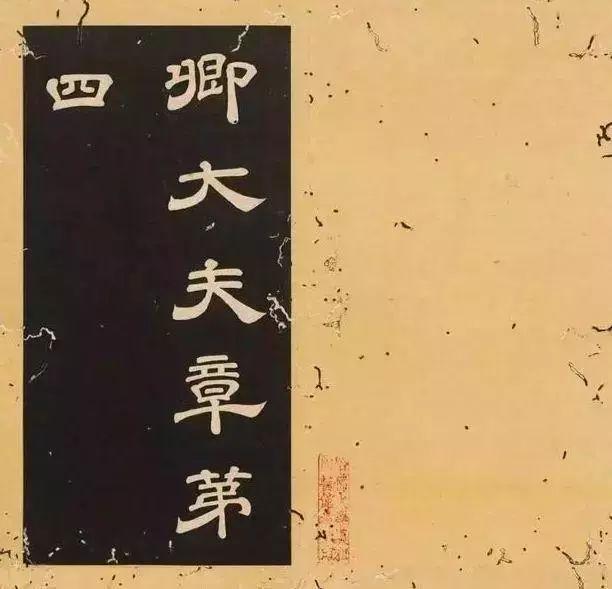 卿大夫章苐
四